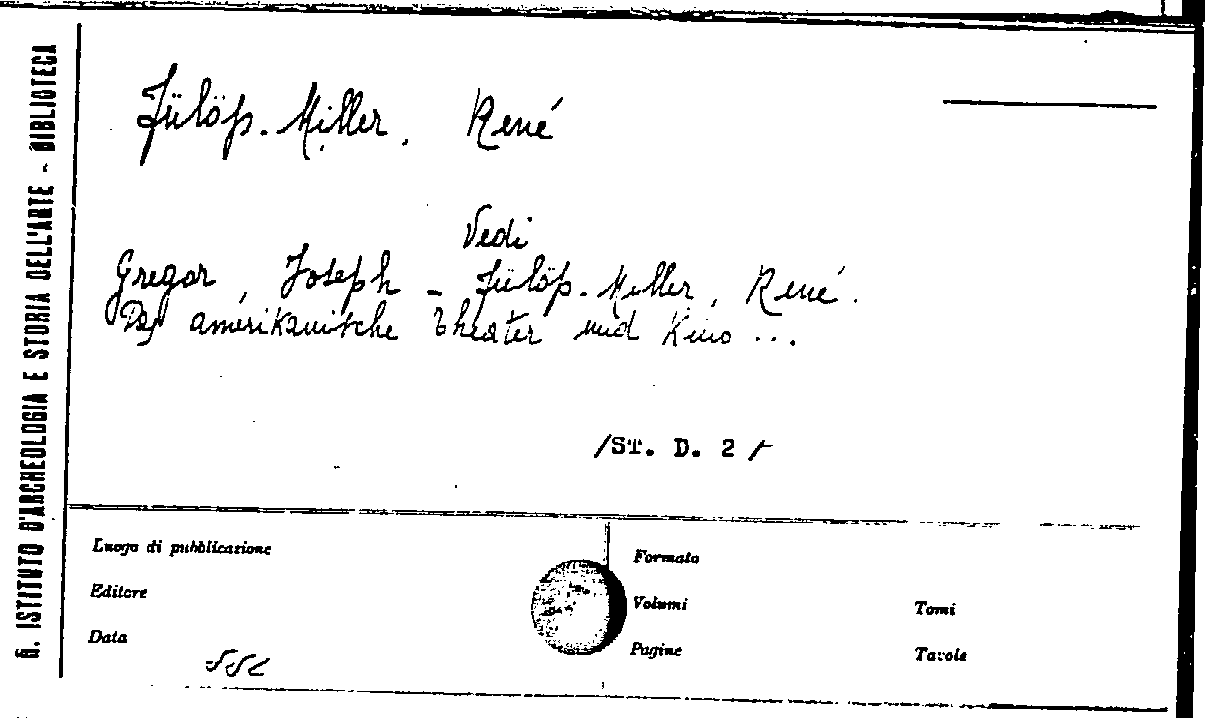 R. ISTITUTO D'ARCHEOLOGIA E STORIA DELL'ARTE - BIBLIOTECA
Fülöp-Miller, René
Vedi
Gregor, Joseph - Fülöp-Miller, René.
Das amerikanische Theater und Kino ...
/ST. D. 2/
Luogo di pubblicazione
Editore
Data
Formato
Volumi
Pagine
Tomi
Tavole